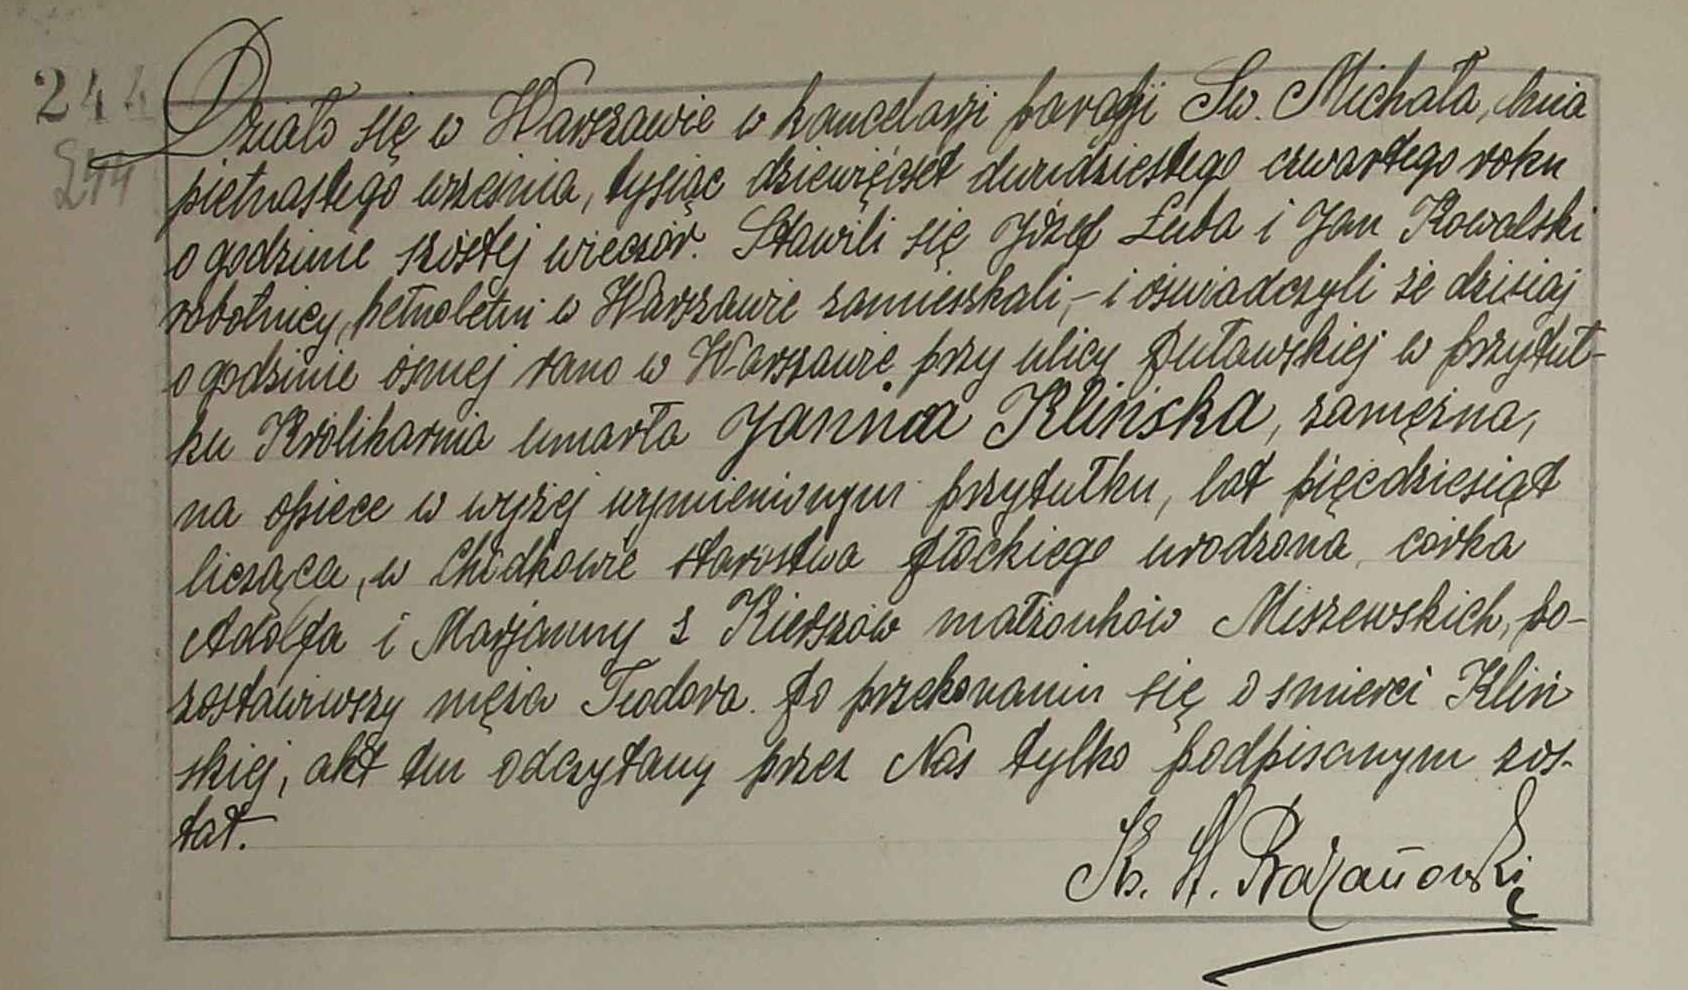 244
244
Działo się w Warszawie w kancelarji parafji Św. Michała, dnia
piętnastego września, tysiąc dziewięćset dwudziestego czwartego roku
o godzinie szóstej wieczór. Stawili się Józef Łuba i Jan Kowalski
robotnicy, pełnoletni w Warszawie zamieszkali, – i oświadczyli że dzisiaj
o godzinie ósmej rano w Warszawie przy ulicy Puławskiej w przytuł-
ku Królikarnia umarła Janina Klińska, zamężna,
na opiece w wyżej wymienionym przytułku, lat pięćdziesiąt
licząca, w Chodkowie starostwa płockiego urodzona córka
Adolfa i Marjanny z małżonków Miszewskich, po-
zostawiwszy męża Teodora. Po przekonaniu się o śmierci Kliń
skiej, akt ten odczytany przez Nas tylko podpisanym zos-
tał.
Ks.